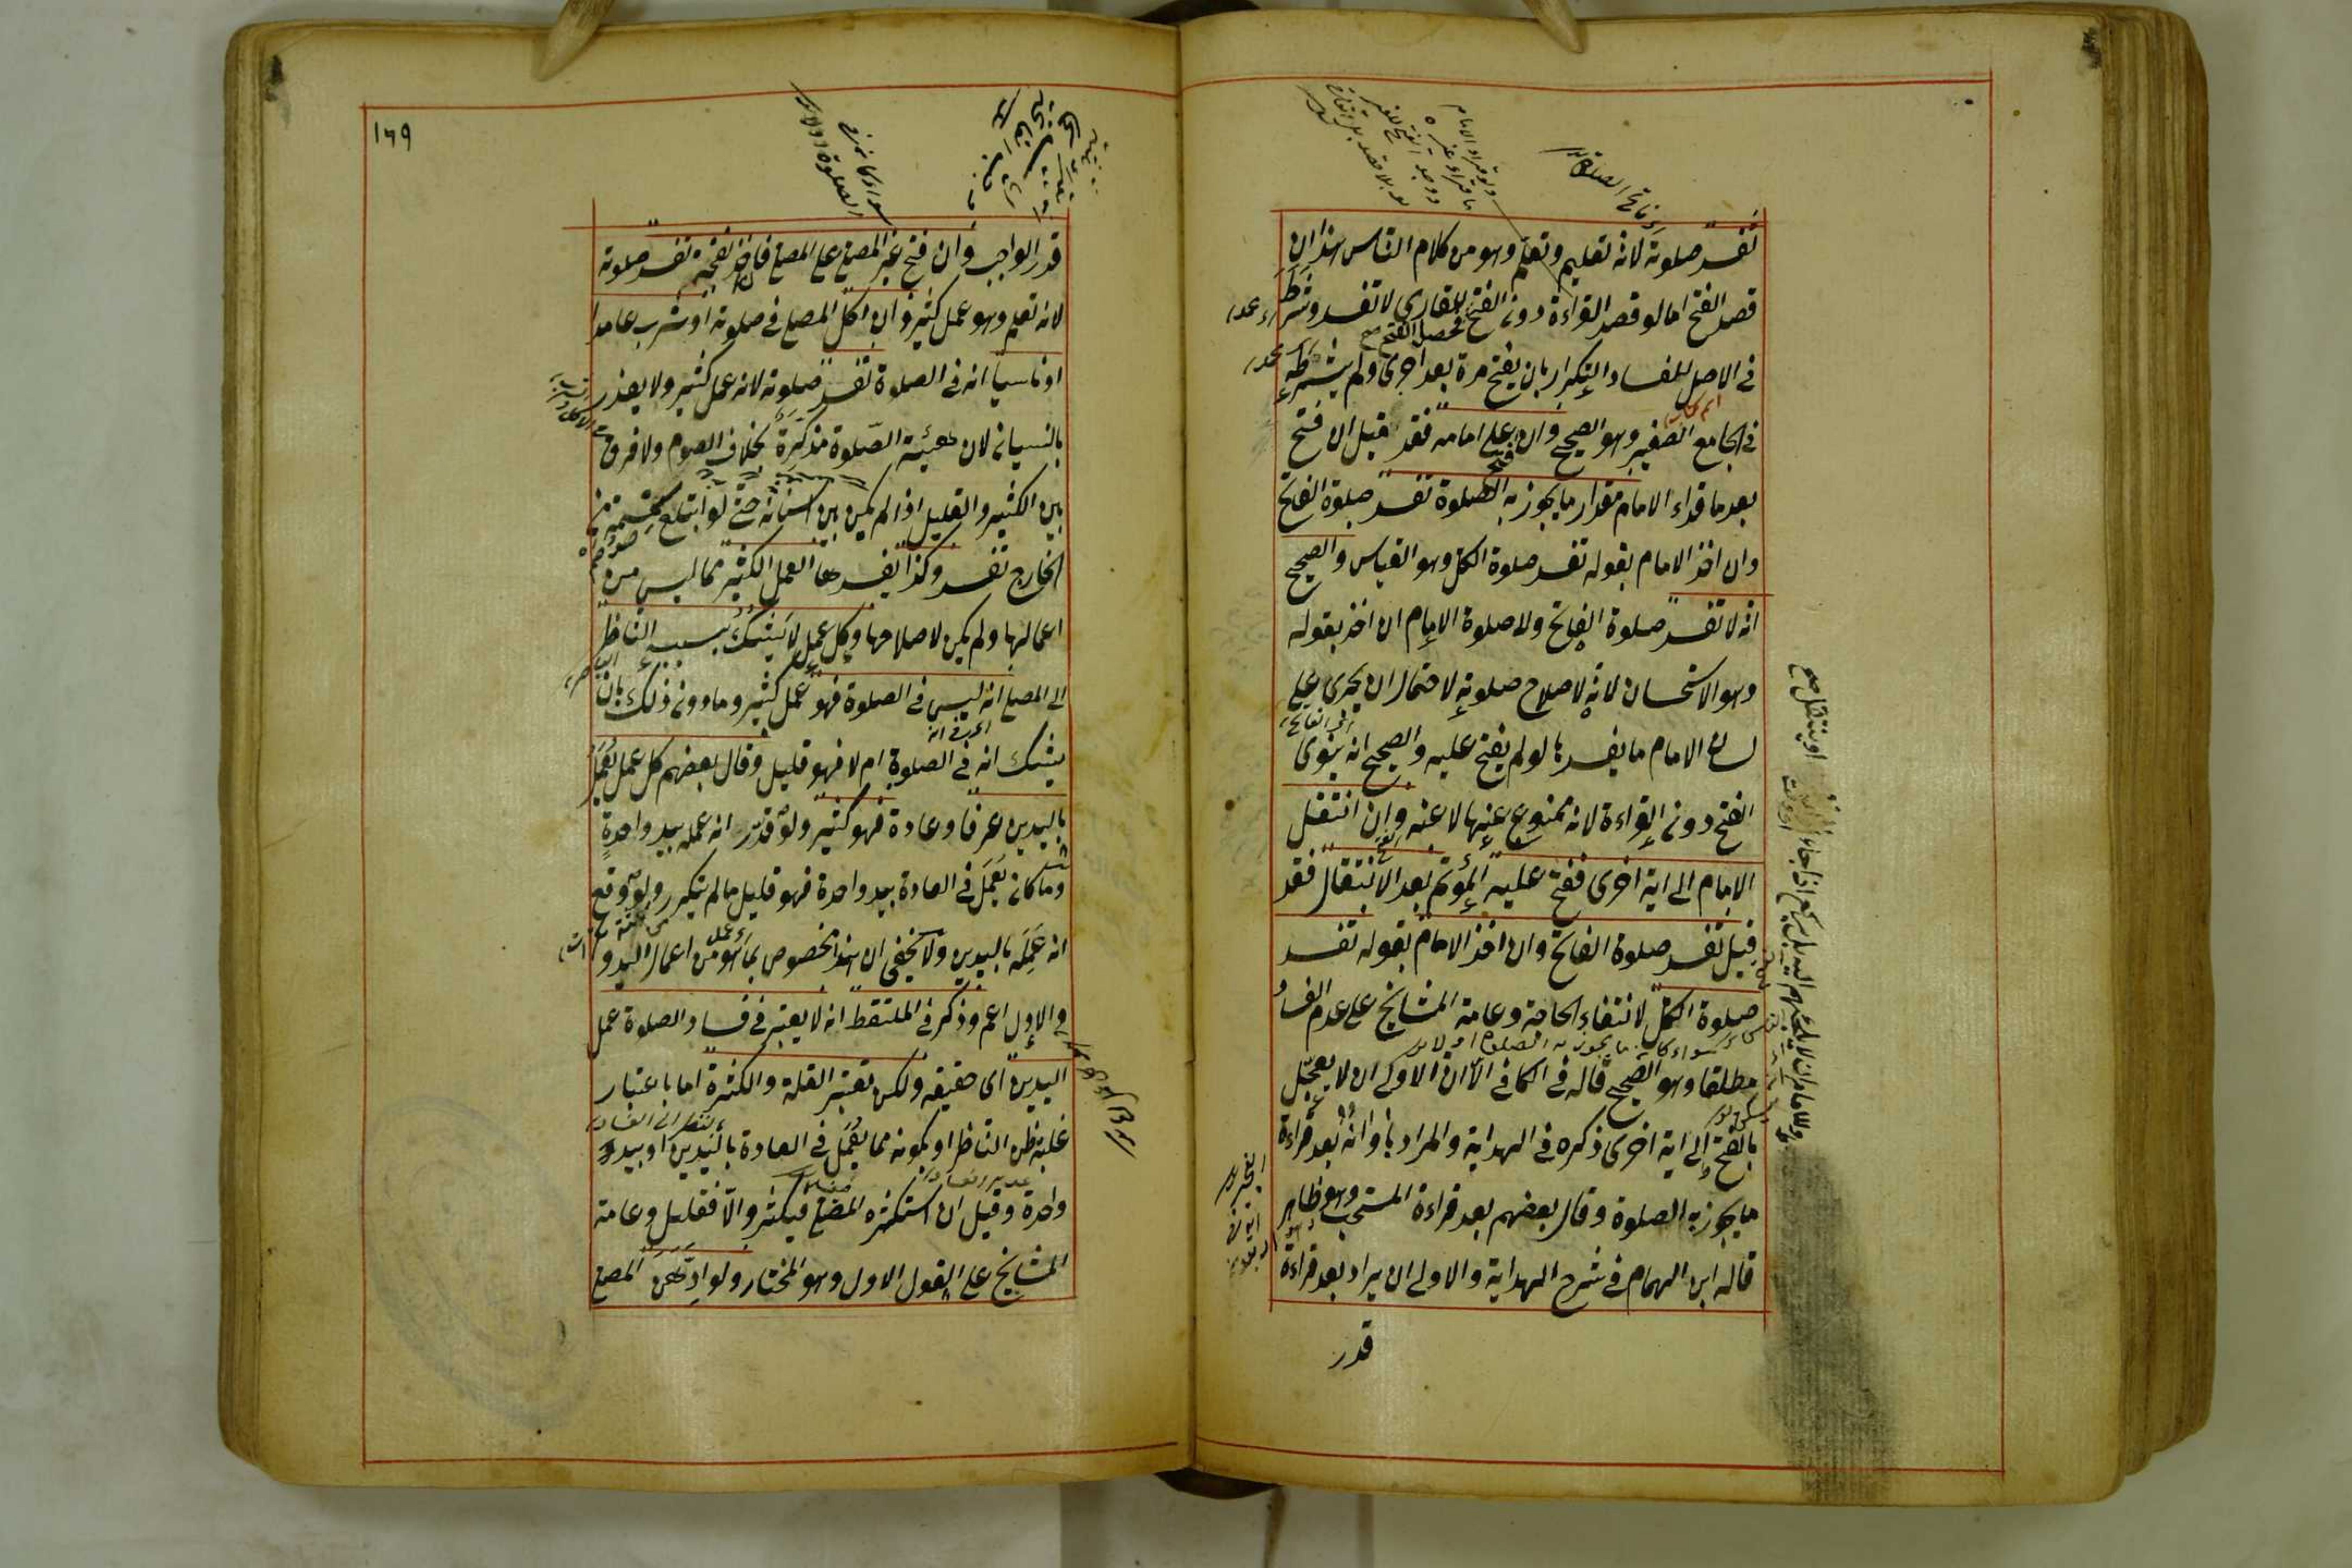 تفسد صلوته لانه تعليم وتعلم وهو من كلام الناس هذا ان
قصد الفتح اما لو قصد القراءة دون الفتح للقارى لا تفسد وشرط
فحصل الفتح صح
فى الاصل للفساد التكرار بان يفتح مرة بعد اخرى ولم يشترطه
فى الجامع الصغير وهو الصحيح وان فتح على امامه فقد قيل ان فتح
بعد ما قراء الامام مقدار ما يجوز به الصلوة تفسد صلوة الفاتح
وان اخذ الامام بقوله تفسد صلوة الكل وهو القياس والصحيح
انه لا تفسد صلوة الفاتح ولا صلوة الامام ان اخذ بقوله
وهو الاستحسان لانه لاصلاح صلوته لاحتمال ان يجرى على
لسان الامام ما يفسدها لو لم يفتح عليه والصحيح انه ينوى
الفتح دون القراءة لانه ممنوع عنها لا عنه وان انتقل
الامام الى اية اخرى ففتح عليه المؤتم بعد الانتقال فقد
قيل تفسد صلوة الفاتح وان اخذ الامام بقوله تفسد
صلوة الكل لانتفاء الحاجة وعامة المشايخ على عدم الفساد
سواء كان ما يجوز به الصلوة او لا
مطلقا وهو الصحيح قاله فى الكافى الا ان الاولى ان لا يعجل
بالفتح الى اية اخرى ذكره فى الهداية والمراد باوانه بعد قراءة
ما يجوز به الصلوة وقال بعضهم بعد قراءة المستحب وهو ظاهر
قاله ابن الهمام فى شرح الهداية والاولى ان يراد بعد قراءة
قدر
ولا امام ان لا يلجئهم اليه بل يركع اذا جاء اوانه او ينتقل صح
١٦٩
قدر الواجب وان فتح غير المصلى على المصلى فاخذ بفتحه تفسد صلوته
لانه تعلم وهو عمل كثير وان اكل المصلى فى صلوته او شرب عامدا
او ناسيا انه فى الصلوة تفسد صلوته لانه عمل كثير ولا يعذر
بالنسيان لان هيئة الصلوة مذكرة بخلاف الصوم ولا فرق
بين الكثير والقليل اذا لم يكن بين اسنانه حتى لو ابتلع سمسمة من
الخارج تفسد وكذا يفسدها العمل الكثير مما ليس من
اعمالها ولم يكن لاصلاحها وكل عمل لا يشك بسببه الناظر
الى المصلى انه ليس فى الصلوة فهو عمل كثير وما دون ذلك بان
يشك انه فى الصلوة ام لا فهو قليل وقال بعضهم كل عمل يعمل
باليدين عرفا وعادة فهو كثير ولو قدر انه عمله بيد واحدة
وما كان يعمل فى العادة بيد واحدة فهو قليل ما لم يتكرر ولو وقع
انه عمله باليدين ولا يخفى ان هذا مخصوص بما هو من اعمال اليد و
الاول اعم وذكر فى الملتقط انه لا يعتبر فى فساد الصلوة عمل
اليدين اى حقيقة ولكن تعتبر القلة والكثرة اما باعتبار
غلبة ظن الناظر او بكونه مما يعمل فى العادة باليدين او بيد
واحدة وقيل ان استكثره المصلى فيكثر والا فقليل وعامة
المشايخ على القول الاول وهو المختار ولو ادهن المصلى